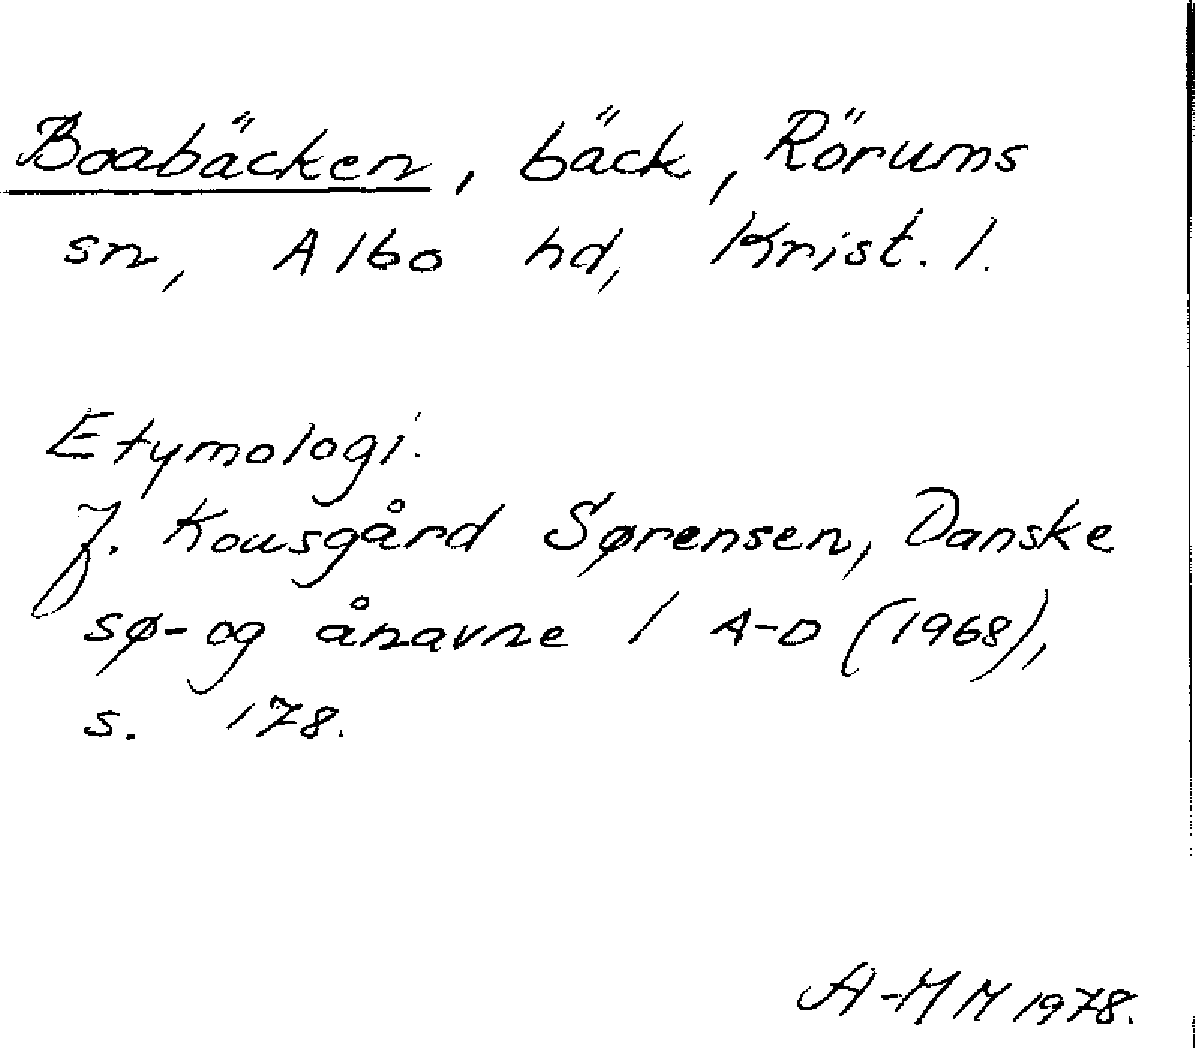 Boabäcken, bäck, Rörums
sn, Albo hd, Krist. l.
Etymologi.
J. Kousgård Sørensen, Danske
sø- og ånavne 1 A-D (1968),
s. 178.
A-M M 1978.